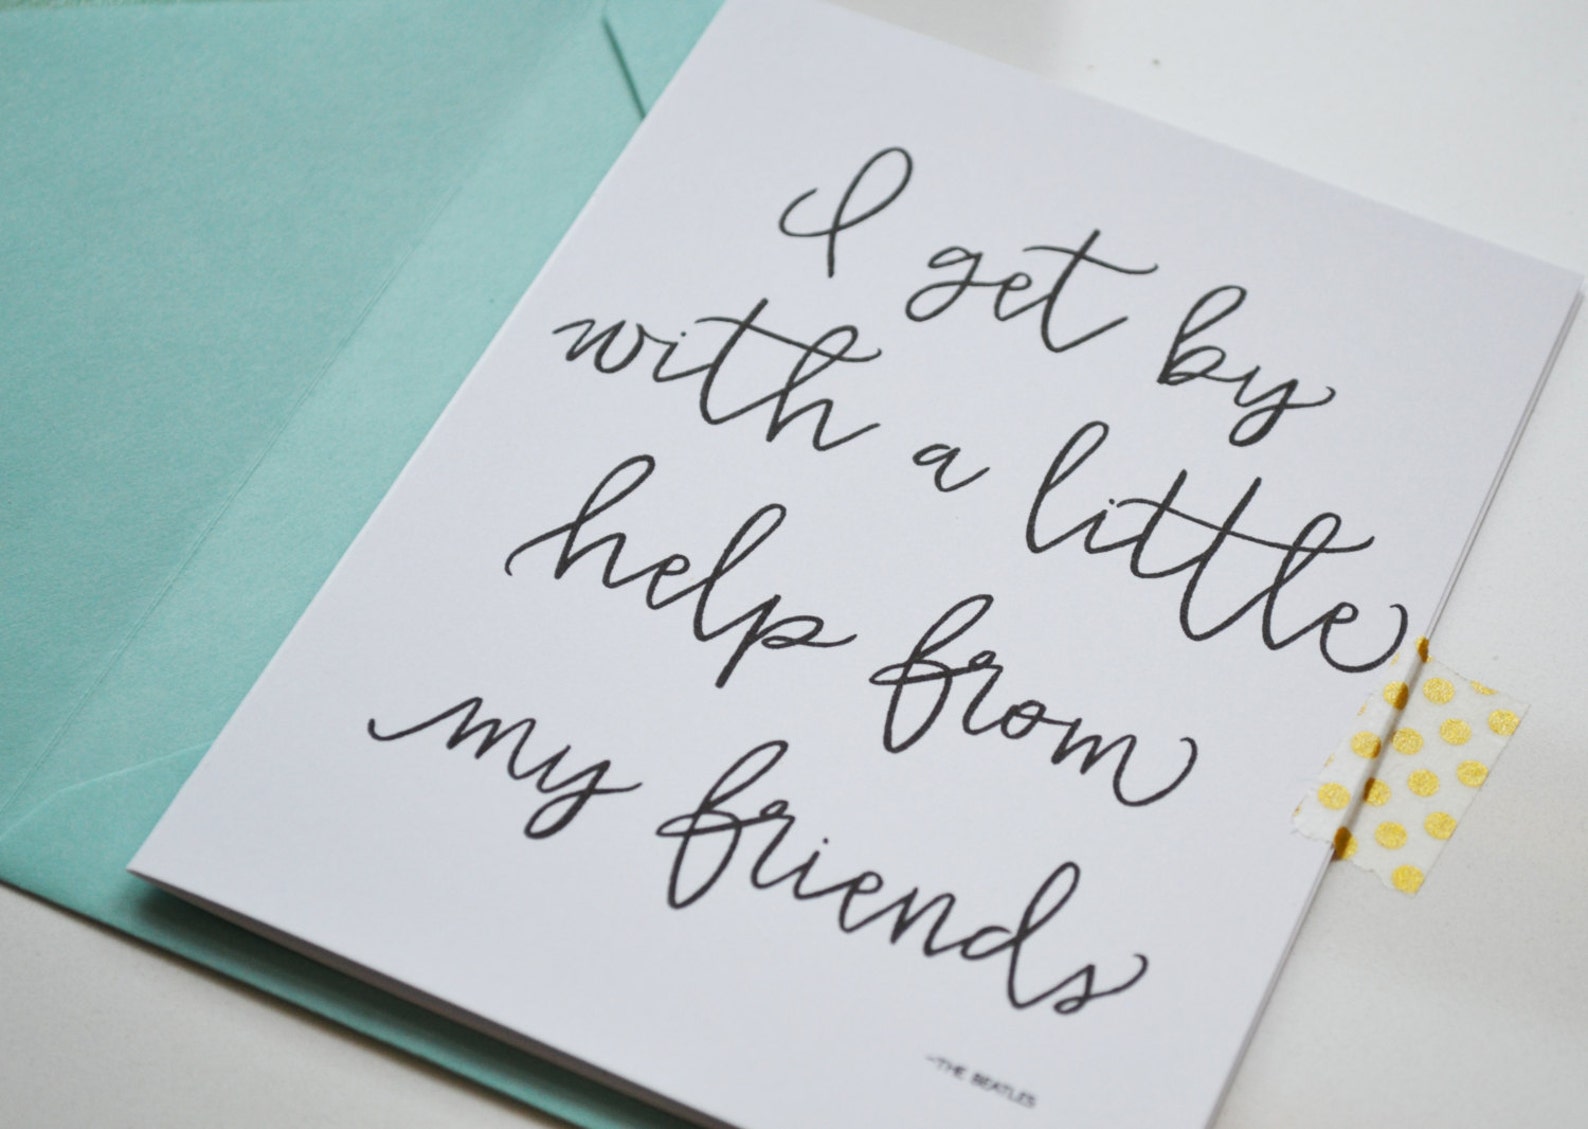 I get by
with a little
help from
my friends
-THE BEATLES